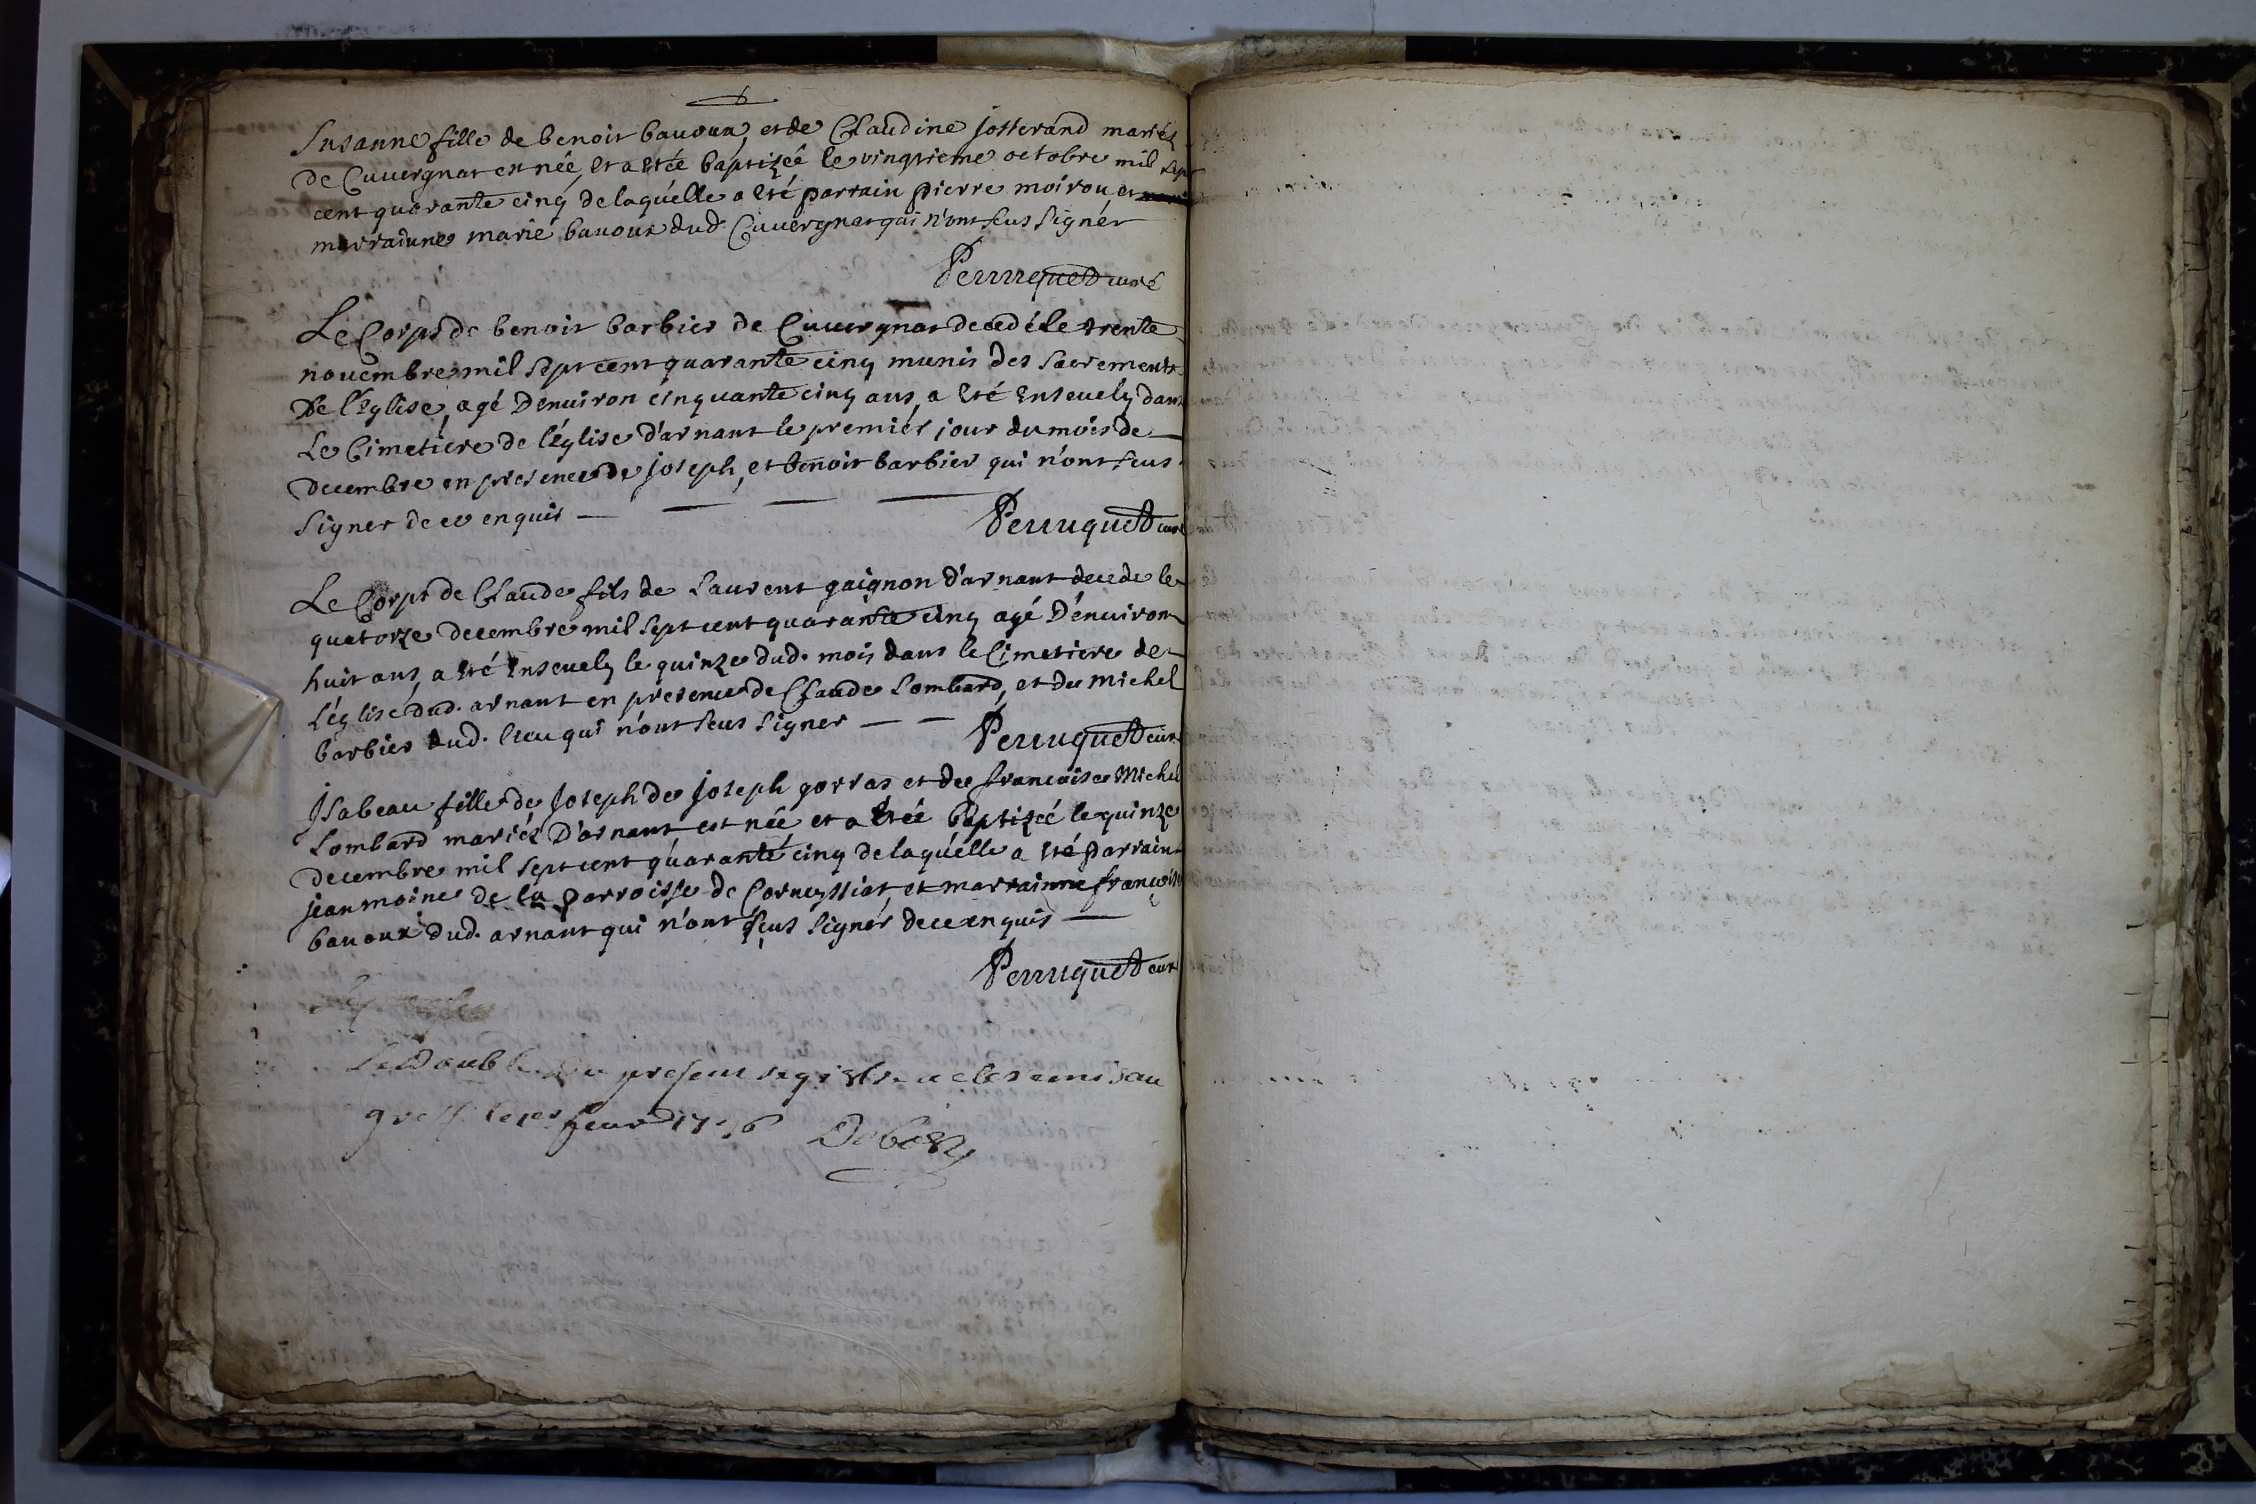 Susanne fille de benoit bauoux, et de Claudine josserand mariéz
de Cuuergnat est née, et a été baptizée le vingtieme octobre mil sept
cent quarante cinq de laquélle a été parrain pierre moiroux, et
marraiune marie bauoux dud. Cuuergnat qui n'ont seus signér
Perruquet curé
Le Corps de benoit barbier de Cuuergnat decedé le trente
nouembre mil sept cent quarante cinq munis des sacrements
De l'Eglise, agé Denuiron cinquante cinq ans, a été enseuely dans
Le Cimetiere de l'église d'arnant le premiér jour du mois de
decembre en presence de joseph, et benoit barbier qui n'ont seus
signer de ce enquis
Perruquet curé
Le Corps de Claude fils de Laurent gaignon d'arnant decede le
quatorze decembre mil sept cent quarante cinq agé D'enuiron
huit ans, a été enseuely le quinze dud. mois dans le Cimetiere de
l'église dud. arnant en presence de Claude Lombard, et de michel
barbier dud. lieu qui n'ont seus signer
Perruquet curé
Jsabeau fille de Joseph de joseph gorras et de francoise Michel
Lombard mariéz D'arnant est née et a été baptizée le quinze
decembre mil sept cent quarante cinq de laquélle a été parrain
jean moine de la parroisse de Corneyssiat, et marrainne françoise
bauoux dud. arnant qui n'ont seus signér de ce enquis
Perruquet curé
Le Double du present registre a eté remis au
greff. le 1er feur 1746 Debost